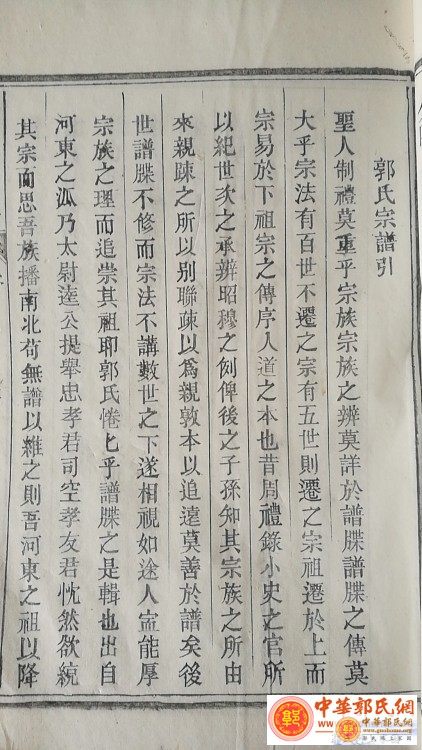 郭氏宗譜引
聖人制禮莫重乎宗族宗族之辨莫詳於譜牒譜牒之傳莫
大乎宗法有百世不遷之宗有五世則遷之宗祖遷於上而
宗易於下祖宗之傳序人道之本也昔周禮錄小史之官所
以紀世次之承辨昭穆之例俾後之子孫知其宗族之所由
來親踈之所以别聯疎以爲親敦本以追遠莫善於譜矣後
世譜牒不修而宗法不講數世之下遂相視如途人寍能厚
宗族之理而追崇其祖耶郭氏惓匕乎譜牒之是輯也出自
河東之派乃太尉逵公提舉忠孝君司空孝友君忱然欲統
其宗而思吾族播南北苟無譜以維之則吾河東之祖以降
中華郭氏網
中華郭氏網
www.guoshome.org